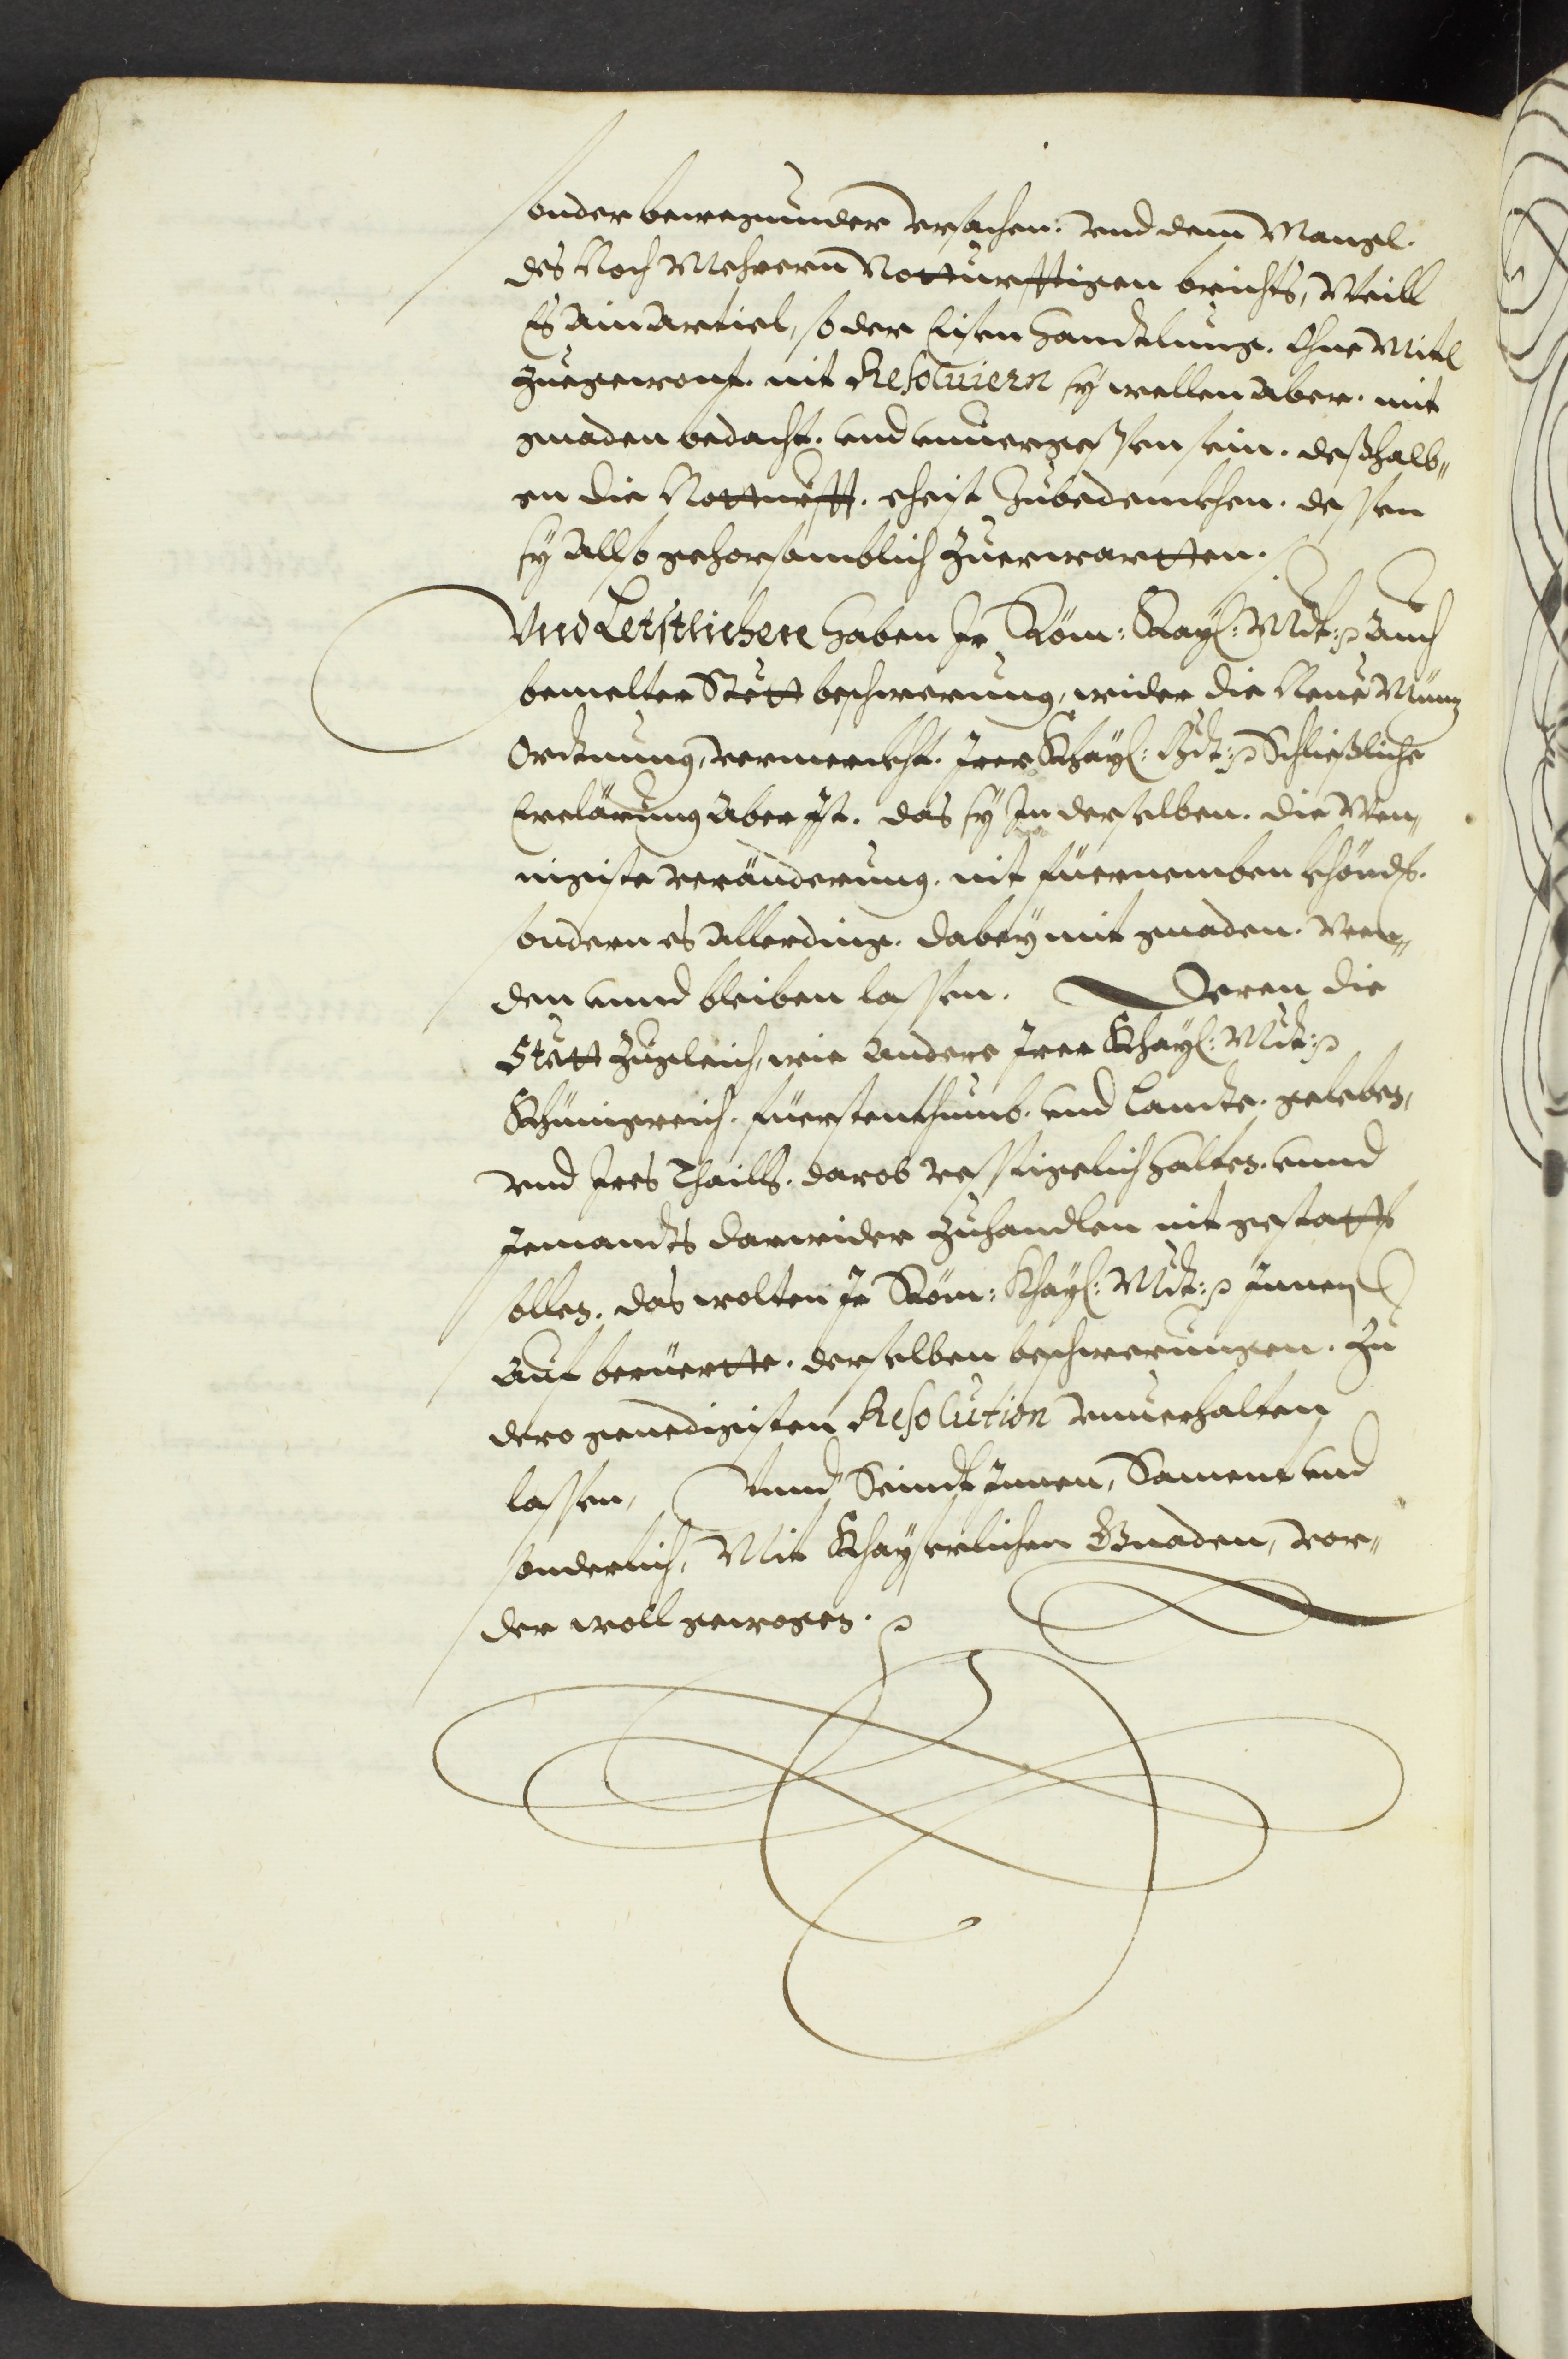 sonder bewegunden vrsachen: vnd dem Mangl.
des Noch Mehrern Notturfftigen brichts, Weill
Es ain Articl, so der Eisen handtlung. Ohne Mitl
zuegewont. nit Resoluiern sy wellen aber. mit
gnaden bedacht. vnd vnuergessen sein. deßhalb„
en die Notturfft. eheist zubedenckhen. dessen
sy Allso gehorsamblich zuerwartten.
Vnd Letstlichen haben Ir Röm: Kay: Mt: Auch
bemelter Stett beschwerung, wider die Neue Münz
Ordtnung, vermerckht. Irer Khay: Mt: Schließliche
Erclärung aber Ist. das sy In derselben. die Wen„
nigiste veränderung. nit füernemben khönd.
sondern es Allerding. dabey mit gnaden. Wen„
den vnnd bleiben lassen. Deren die
Stett zugleich, wie Andere Irer Khay: Mt:
Khünigreich. Fürstenthumb. vnd Lande. geleben,
vnd Ires Thaills. darob vesstigclich halten. vnnd
Jemandts darwider zuhandlen nit gestatten
sollen. das wolten Ir Röm: Khay: Mt: Innen
Auf berüertte. derselben beschwerungen. zu
dero genedigisten Resolution vnuerhalten
lassen, Vnnd Seindt Innen, Sament vnd
sonderlich, Mit Khayserlichen Gnaden, vor„
der woll gewogen.